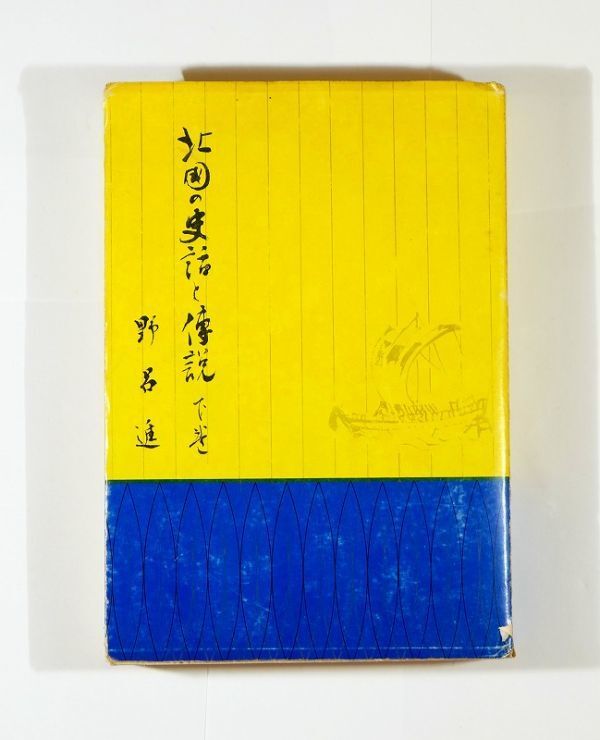 北國の史話と傳説 下巻
野呂進